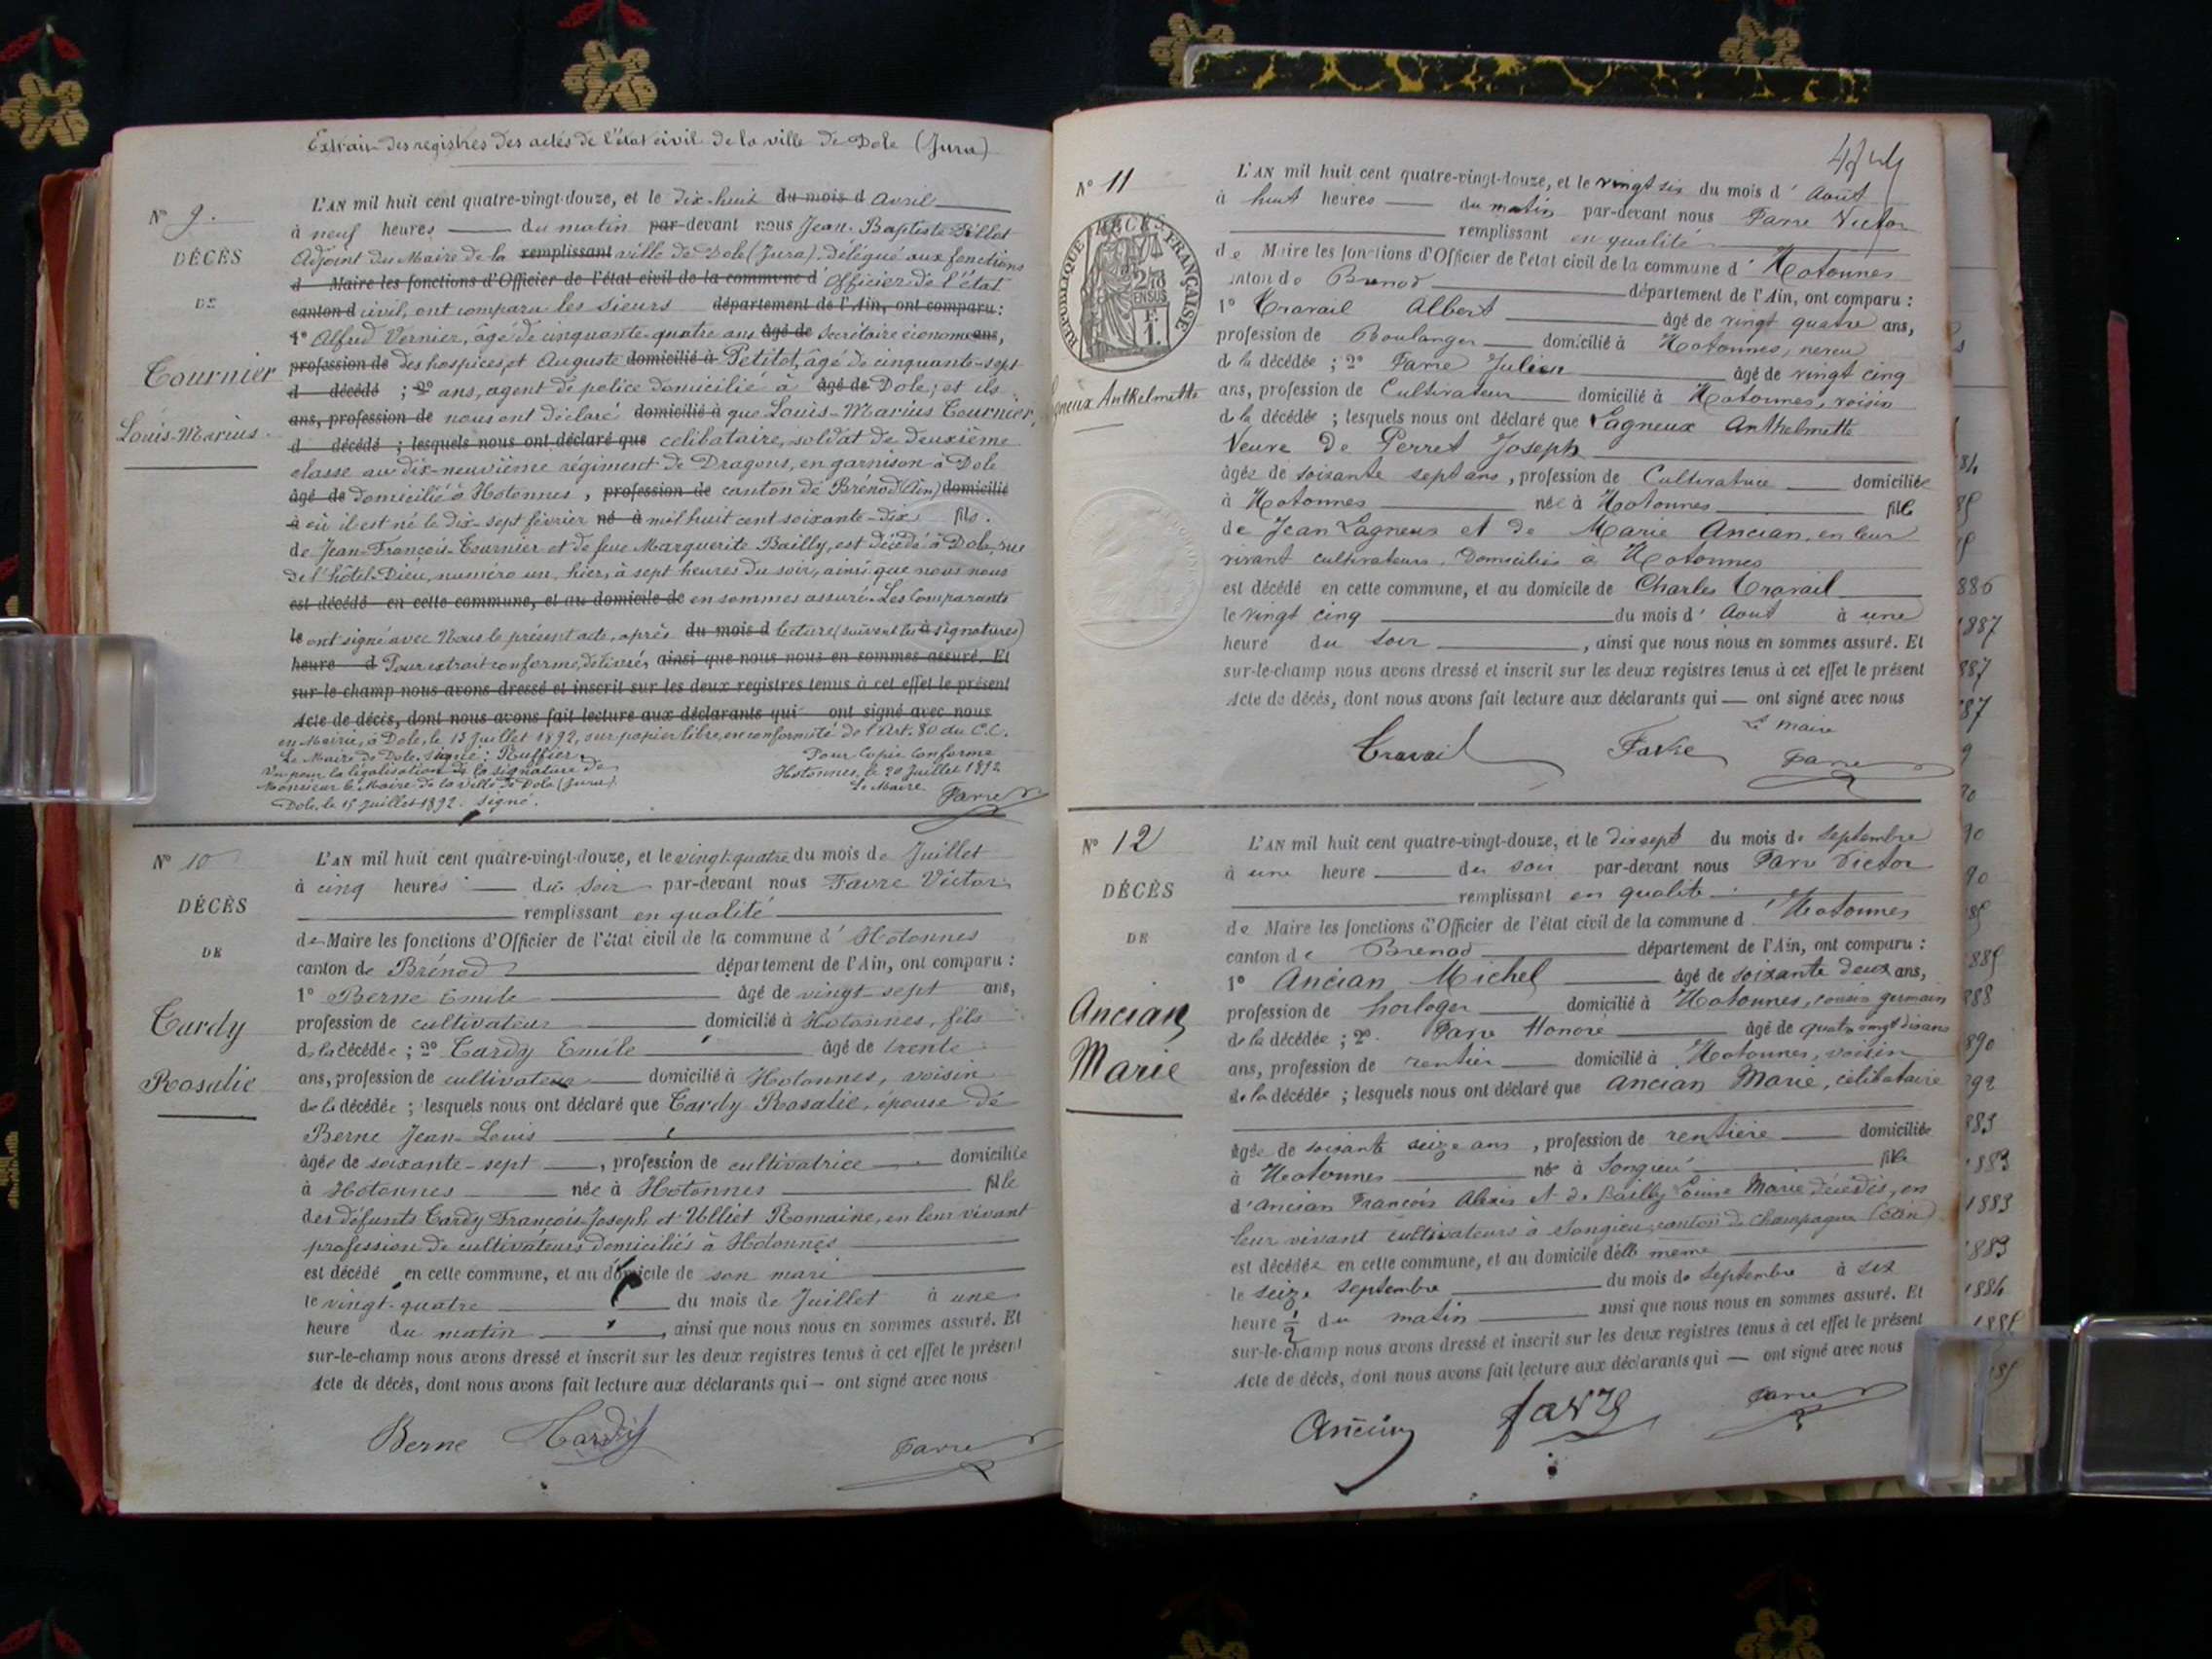 Extrait des registres des actes de l'état civil de la ville de Dole (Jura)
N° 9.
DÉCÈS
DE
Tournier
Louis-Marius.
L'AN mil huit cent quatre-vingt-douze, et le dix-huit du mois d Avril
à neuf heures du matin par-devant nous Jean-Baptiste Billet
Adjoint du Maire de la remplissant ville de Dole (Jura), délégué aux fonctions
d Maire les fonctions d'Officier de l'état civil de la commune d' officier de l'état
canton d civil, ont comparu les sieurs département de l'Ain, ont comparu :
1° Alfred Vernier, âgé de cinquante-quatre ans âgé de secrétaire économe ans,
profession de des hospices, et Auguste domicilié à Petitot, âgé de cinquante-sept
d décédé ; 2° ans, agent de police domicilié à âgé de Dole ; et ils
ans, profession de nous ont déclaré domicilié à que Louis-Marius Tournier,
d décédé ; lesquels nous ont déclaré que célibataire, soldat de deuxième
classe au dix-neuvième régiment de Dragons, en garnison à Dole
âgé de domicilié à Hotonnes, profession de canton de Brénod (Ain) domicilié
à où il est né le dix-sept février né à mil huit cent soixante-dix fils.
de Jean-François Tournier et de feue Marguerite Bailly, est décédé à Dole, rue
de l'hôtel-Dieu, numéro un, hier, à sept heures du soir, ainsi que nous nous
est décédé en cette commune, et au domicile de en sommes assuré. Les Comparants
le ont signé avec Nous le présent acte, après du mois d lecture (suivent les à signatures)
heure d Pour extrait conforme, délivrés ainsi que nous nous en sommes assuré. Et
sur-le-champ nous avons dressé et inscrit sur les deux registres tenus à cet effet le présent
Acte de décès, dont nous avons fait lecture aux déclarants qui ont signé avec nous
en Mairie, à Dole, le 15 Juillet 1892, sur papier libre, en conformité de l'Art. 80 du C.C.
Le Maire de Dole, signé : Ruffier.
Vu pour la légalisation de la signature de
Monsieur le Maire de la ville de Dole (Jura)
Dole, le 15 Juillet 1892. signé.
Pour Copie Conforme
Hotonnes, le 20 Juillet 1892
Le Maire
Favre
N° 10
DÉCÈS
DE
Tardy
Rosalie
L'AN mil huit cent quatre-vingt-douze, et le vingt-quatre du mois de Juillet
à cinq heures du soir par-devant nous Favre Victor
remplissant en qualité
de Maire les fonctions d'Officier de l'état civil de la commune d' Hotonnes
canton de Brénod département de l'Ain, ont comparu :
1° Berne Emile âgé de vingt-sept ans,
profession de cultivateur domicilié à Hotonnes, fils
de la décédée ; 2° Tardy Emile âgé de trente
ans, profession de cultivateur domicilié à Hotonnes, voisin
de la décédée ; lesquels nous ont déclaré que Tardy Rosalie, épouse de
Berne Jean-Louis
âgée de soixante-sept , profession de cultivatrice domiciliée
à Hotonnes née à Hotonnes fille
des défunts Tardy François-Joseph et Ulliet Romaine, en leur vivant
profession de cultivateurs domiciliés à Hotonnes
est décédé en cette commune, et au domicile de son mari
le vingt-quatre du mois de Juillet à une
heure du matin , ainsi que nous nous en sommes assuré. Et
sur-le-champ nous avons dressé et inscrit sur les deux registres tenus à cet effet le présent
Acte de décès, dont nous avons fait lecture aux déclarants qui — ont signé avec nous
Berne Tardy Favre
N° 11
RÉPUBLIQUE FRANÇAISE
2/10 EN SUS
Lagneux Anthelmette
L'AN mil huit cent quatre-vingt-douze, et le vingt six du mois d' Août
à huit heures du matin par-devant nous Favre Victor
remplissant en qualité
de Maire les fonctions d'Officier de l'état civil de la commune d' Hotonnes
canton de Brenod département de l'Ain, ont comparu :
1° Travail Albert âgé de vingt quatre ans,
profession de Boulanger domicilié à Hotonnes, neveu
de la décédée ; 2° Favre Julien âgé de vingt cinq
ans, profession de Cultivateur domicilié à Hotonnes, voisin
de la décédée ; lesquels nous ont déclaré que Lagneux Anthelmette
Veuve de Perret Joseph
âgée de soixante sept ans, profession de Cultivatrice domiciliée
à Hotonnes née à Hotonnes fille
de Jean Lagneux et de Marie Ancian, en leur
vivant cultivateurs, domiciliés à Hotonnes
est décédé en cette commune, et au domicile de Charles Travail
le vingt cinq du mois d' Aout à une
heure du soir , ainsi que nous nous en sommes assuré. Et
sur-le-champ nous avons dressé et inscrit sur les deux registres tenus à cet effet le présent
Acte de décès, dont nous avons fait lecture aux déclarants qui — ont signé avec nous
Le maire
Travail Favre Favre
N° 12
DÉCÈS
DE
Ancian
Marie
L'AN mil huit cent quatre-vingt-douze, et le dix sept du mois de Septembre
à une heure du soir par-devant nous Favre Victor
remplissant en qualité
de Maire les fonctions d'Officier de l'état civil de la commune d' Hotonnes
canton de Brenod département de l'Ain, ont comparu :
1° Ancian Michel âgé de soixante deux ans,
profession de horloger domicilié à Hotonnes, cousin germain
de la décédée ; 2° Favre Honoré âgé de quatre vingt dix ans
ans, profession de rentier domicilié à Hotonnes, voisin
de la décédée ; lesquels nous ont déclaré que Ancian Marie, célibataire
âgée de soixante seize ans , profession de rentière domiciliée
à Hotonnes née à Songieu fille
d'Ancian François Alexis et de Bailly Marie décédés, en
leur vivant cultivateurs à Songieu, canton de Champagne (Ain)
est décédée en cette commune, et au domicile d'elle même
le seize septembre du mois de Septembre à six
heure ½ du matin ainsi que nous nous en sommes assuré. Et
sur-le-champ nous avons dressé et inscrit sur les deux registres tenus à cet effet le présent
Acte de décès, dont nous avons fait lecture aux déclarants qui — ont signé avec nous
Ancian favre Favre
886
1887
887
87
90
90
1889
888
890
892
883
1883
1883
1883
1884